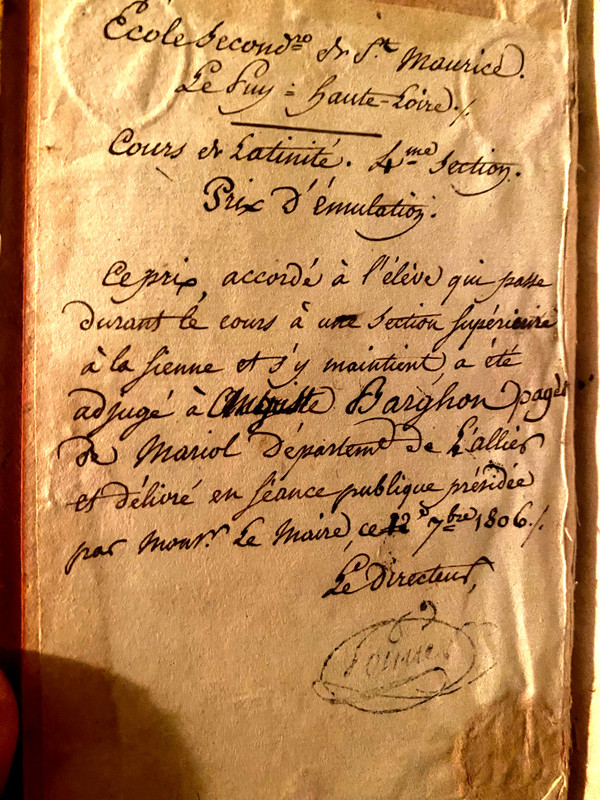 École Second.re de St. Maurice.
Le Puy = haute-Loire./.
Cours de Latinité. 4me Section.
Prix D'émulation.
Ce prix, accordé à l'élève qui passe
durant le cours à une Section Supérieure
à la sienne et s'y maintient, a été
adjugé à Auguste Barghon pagès
de Mariol Départemt. de L'allier
et délivré en séance publique présidée
par Monsr. Le Maire, ce 12 7bre 1806./.
Le Directeur,